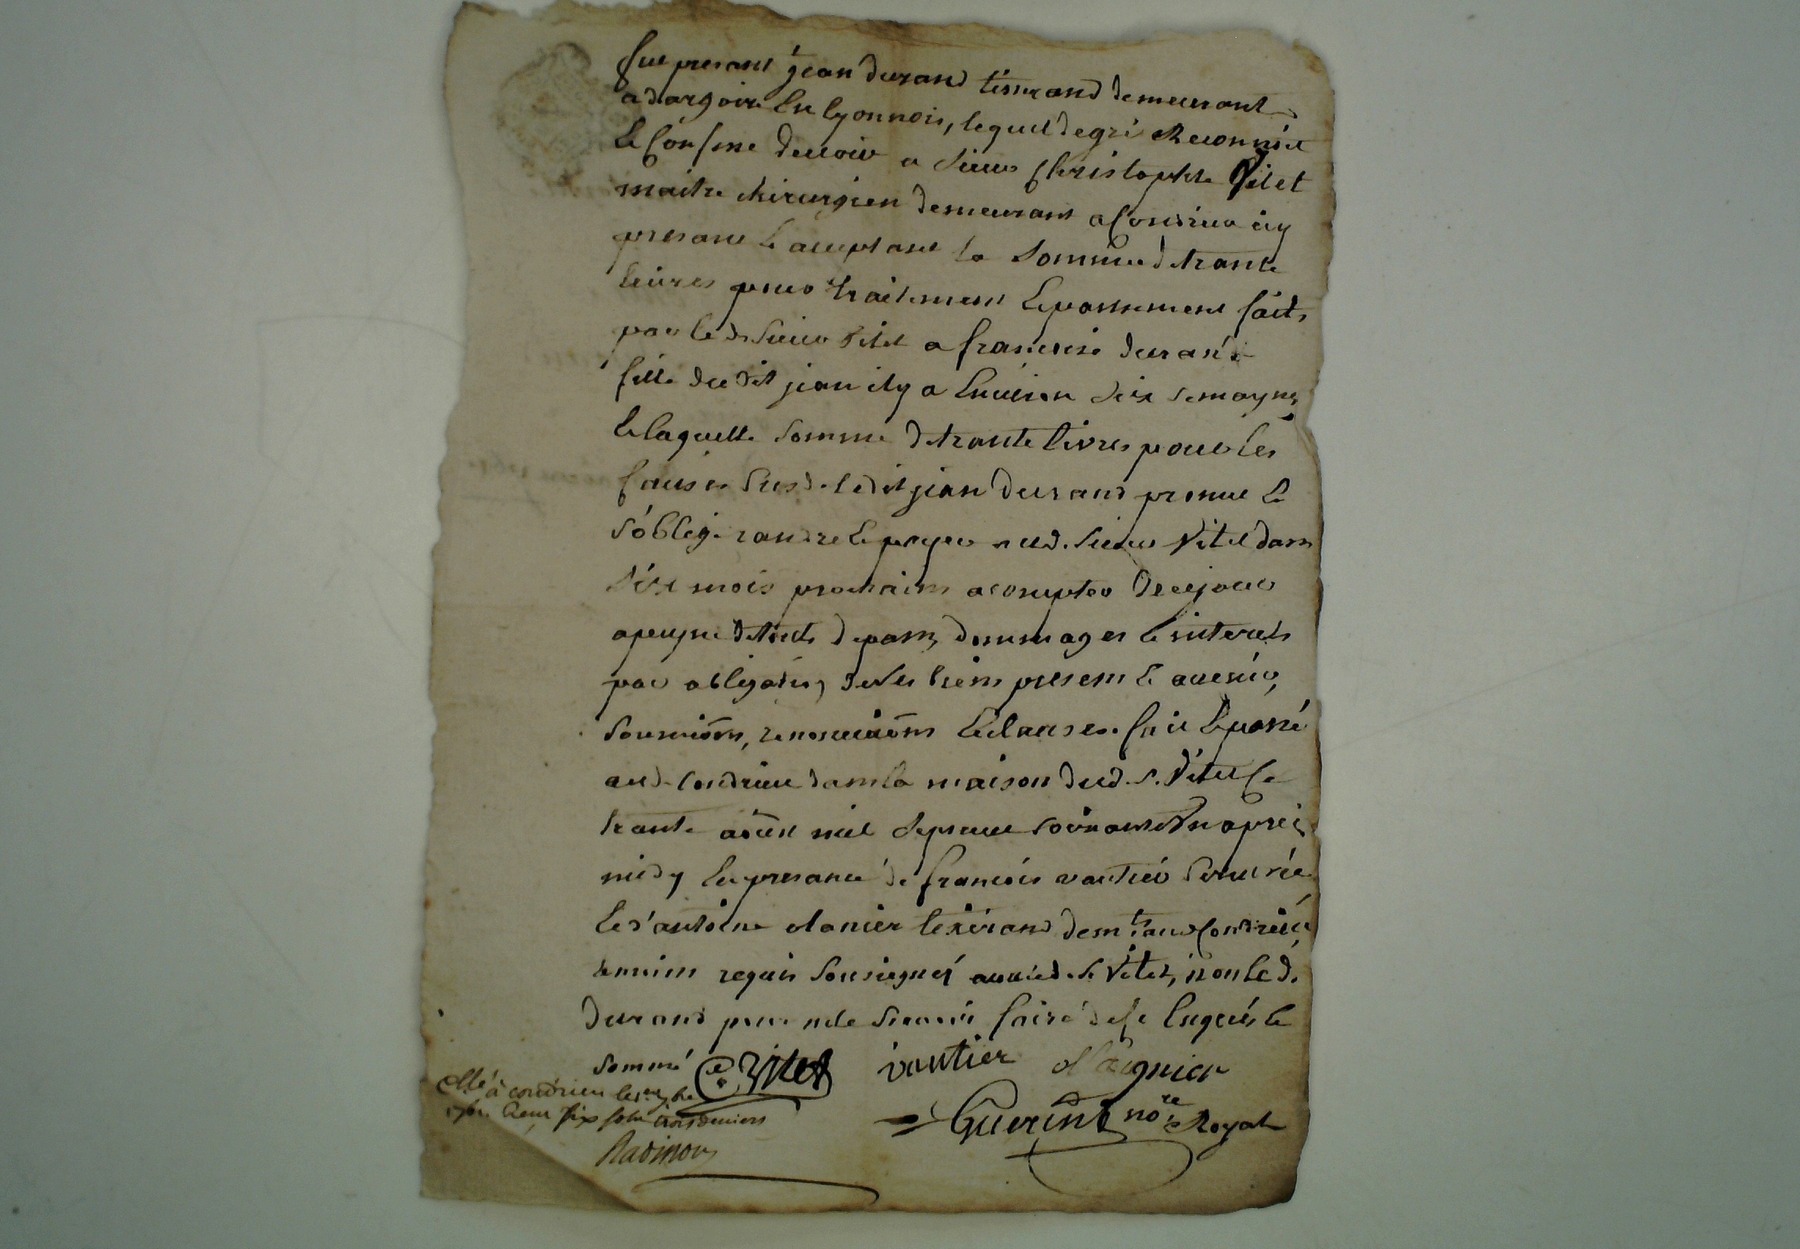 fut presant jean durand tisserand demeurant
a dargoire En lyonnois, lequel de gré a Reconnût
Et Confesse devoir a sieur Christophle Vitet
maitre chirurgien demeurant a Condrieu icy
presant Et acceptant la Somme de trante
livres pour traitement Et pansement faits
par le d. Sieur Vitet a francoise durand
fille du dit jean il y a Environ six semaynes
Et laquelle somme de trante livres pour les
causes Susd. le dit jean durand promet Et
s'oblige randre Et payer aud. Sieur Vitet dans
six mois prochains a compter de ce jour
a peyne de tous depans, dommages Et interets
par obligation, de ses biens presens Et avenir,
soumissions, renonciations Et clauses. fait Et passé
aud. Condrieu dans la maison dud. s. Vitet le
trante aoust mil sept cent soixante un apres
midy En presance de francois vautier
Et d'antoine danier demts. aud. Condrieu
temoins requis soussignés avec led. s. Vitet, non le d.
durand pour ne le scavoir faire de ce Enquis Et
sommé C. Vitet vautier dagnier
Collé à condrieu le
Reçu six sols trois deniers
Guerin nore. Royal